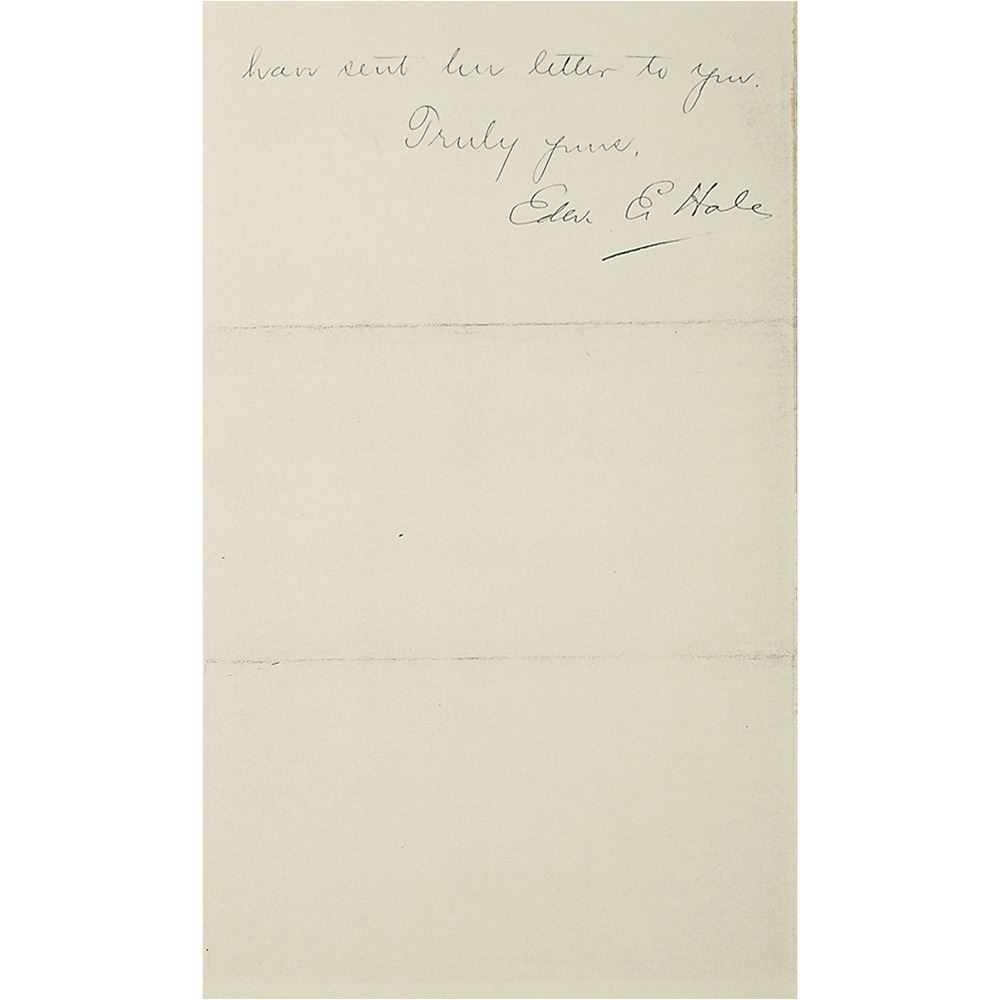 have sent her letter to you.
Truly yours,
Edw. E. Hale